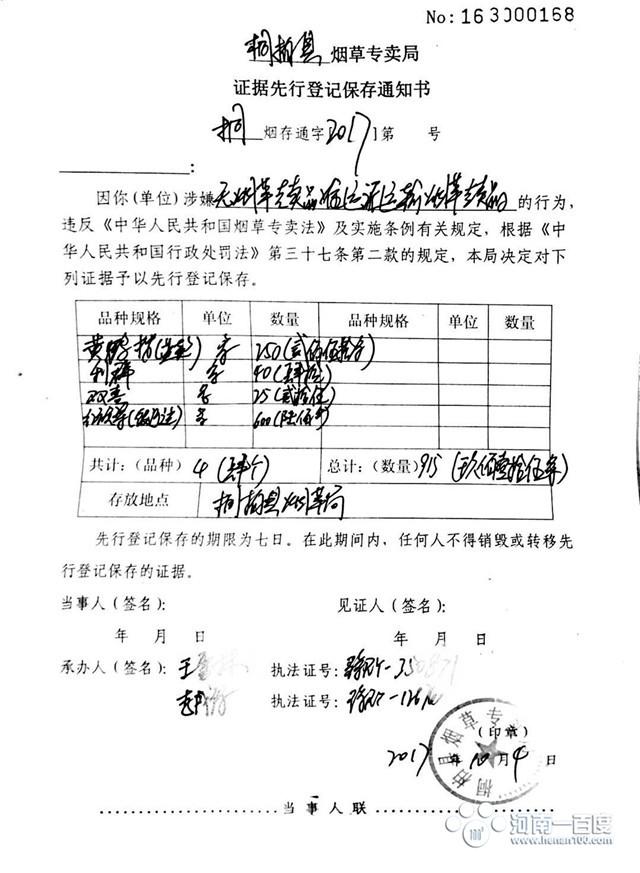 No: 163000168
桐柏县 烟草专卖局
证据先行登记保存通知书
桐 烟存通字 2017] 第 号
:
因你(单位)涉嫌无烟草专卖品准运证运输烟草专卖品的行为,
违反《中华人民共和国烟草专卖法》及实施条例有关规定, 根据《中
华人民共和国行政处罚法》第三十七条第二款的规定, 本局决定对下
列证据予以先行登记保存。
品种规格 单位 数量 品种规格 单位 数量
黄鹤楼 条 250 (贰佰伍拾条)
利群 条 40 (肆拾)
双喜 条 25 (贰拾伍)
条 600 (陆佰条)
共计: (品种) 4 (肆个) 总计: (数量) 915 (玖佰壹拾伍条)
存放地点 桐柏县烟草局
先行登记保存的期限为七日。在此期间内, 任何人不得销毁或转移先
行登记保存的证据。
当事人 (签名): 见证人 (签名):
年 月 日 年 月 日
承办人 (签名): 王 执法证号:
执法证号:
桐柏县烟草专
(印章)
2017 年 10 月 4 日
当事人联
100°
河南一百度
www.henan100.com